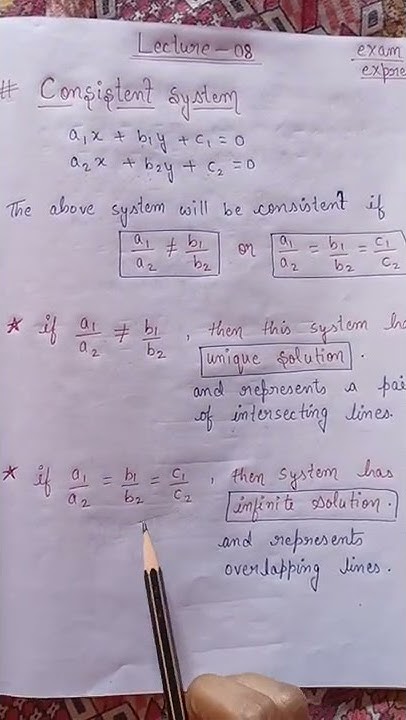 Lecture - 08
exam
expore
# Consistent System
a₁x + b₁y + c₁ = 0
a₂x + b₂y + c₂ = 0
The above system will be consistent if
a₁/a₂ ≠ b₁/b₂ or a₁/a₂ = b₁/b₂ = c₁/c₂
* if a₁/a₂ ≠ b₁/b₂ , then this system ha
unique solution .
and represents a pai
of intersecting lines.
* if a₁/a₂ = b₁/b₂ = c₁/c₂ , then system has
infinite solution .
and represents
overlapping lines .